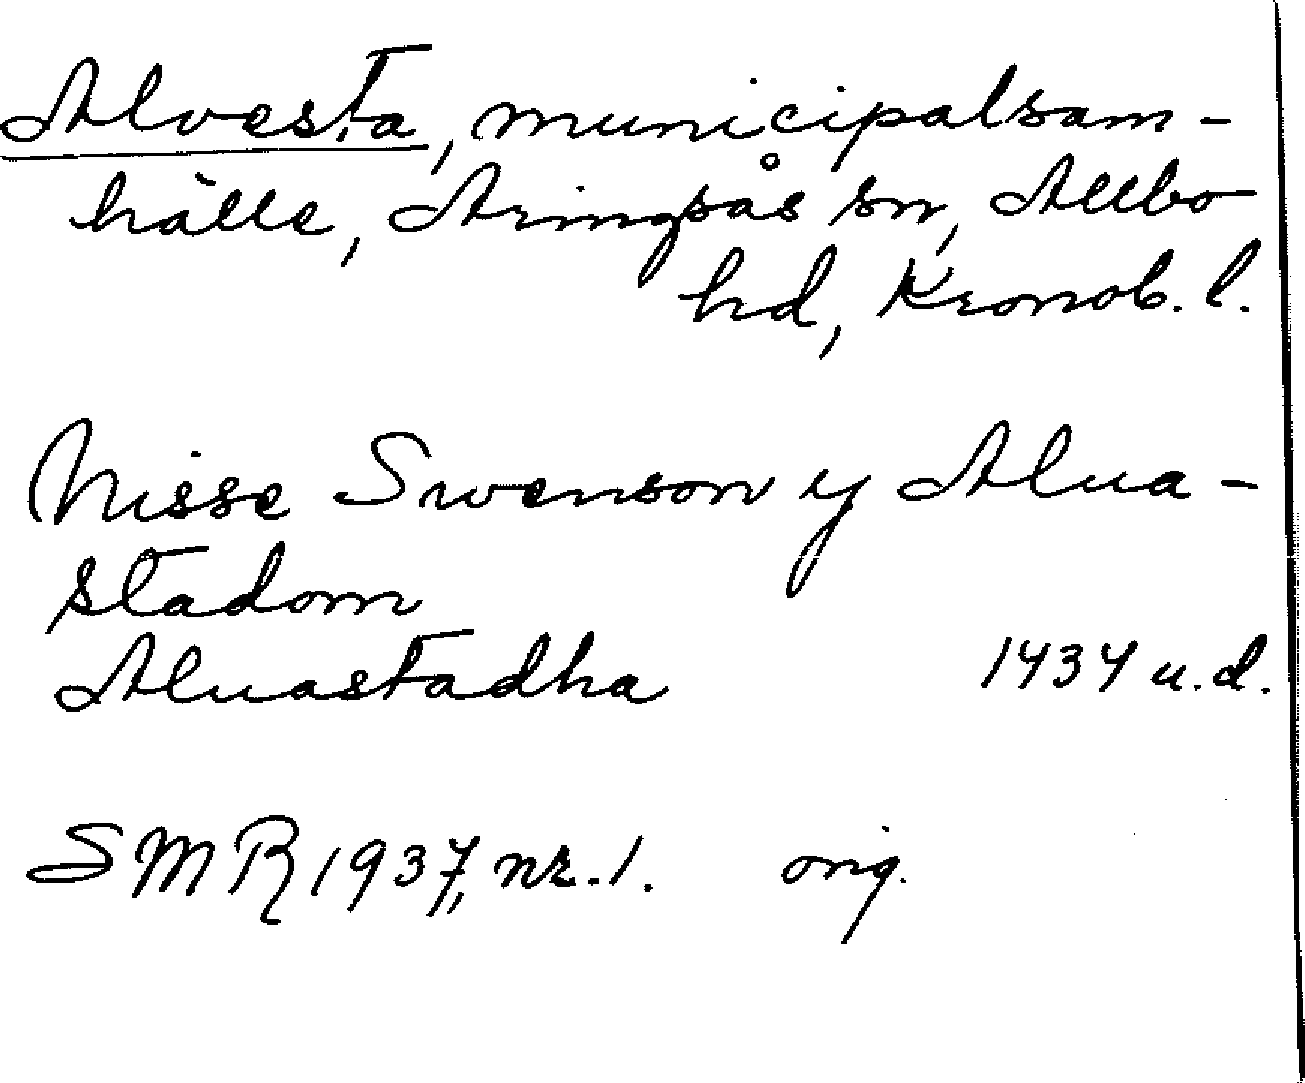 Alvesta, municipalsam-
hälle, Aringsås sn, Allbo
hd, Kronob. l.
Nisse Swenson y Alua-
stadom
Aluastadha 1434 u.d.
SMR 1937, nr. 1. orig.